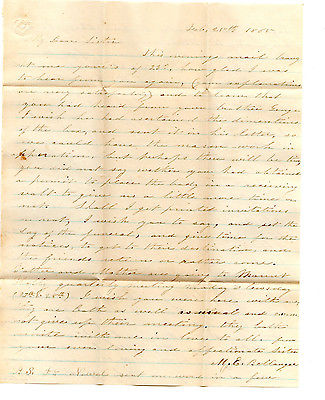 Feb, 25th, 1855
My Dear Sister
This evenings mail brou
ght me your's of 23d, how glad I was
to hear from you again, (your explanations
are very satisfactory) and to learn that
you had heard from your brother George
I wish he had ascertained the dimentions
of the box, and sent it in his letter, so
we could have the mason work in
operation, but perhaps there will be time
you did not say wether you had obtained
a permit to place the body in a receiving
vault to give us a little more time or
not. Shall I get printed invitations
or not, I wish you to say, and set the
day of the funeral, and give time for the
notices, to get to their destination, and
the friends
Father and Mother are going to Mount
Holly quarterly meeting monday & tuesday
I wish you were here, with me,
my are both as well as usual and can
not give up their meeting. They both
unite with me in love to all from
your ever loving and affectionate Sister
M. E. Bellangee
P.S.
sent me word in a few